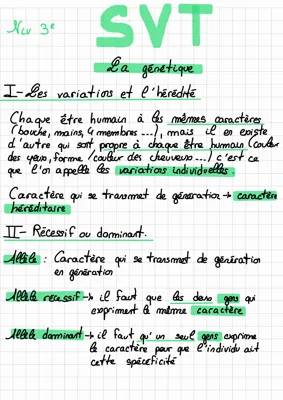 Niv 3e
SVT
La génétique
I- Les variations et l'hérédité
Chaque être humain à les mêmes caractères
(bouche, mains, 4 membres ...), mais il en existe
d'autre qui sont propre à chaque être humain (couleur
des yeux, forme / couleur des cheveux ...) c'est ce
que l'on appelle les variations individuelles.
Caractère qui se transmet de génération → caractère
héréditaire
II- Récessif ou dominant.
Allèle : Caractère qui se transmet de génération
en génération
Allèle récessif → il faut que les deux gens qui
expriment le même caractère
Allèle dominant → il faut qu'un seul gens exprime
le caractère pour que l'individu ait
cette spécificité